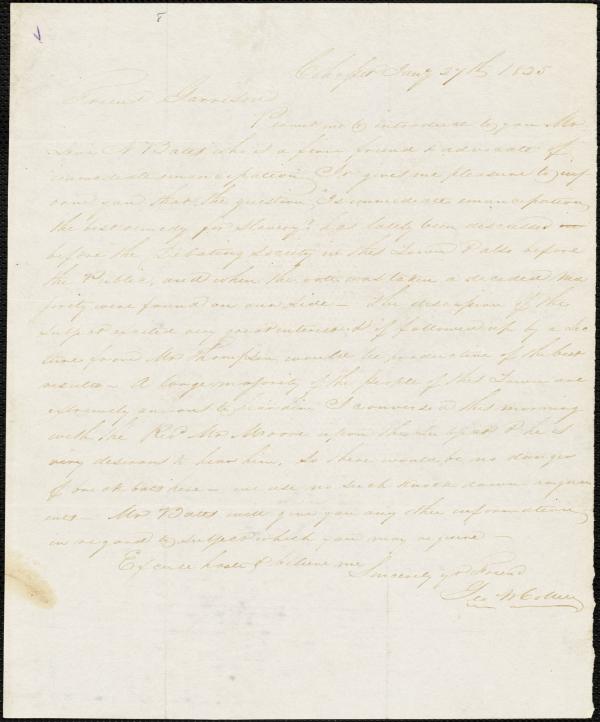 Cohasset Jany 27th 1835
Friend Garrison
Permit me to introduce to you Mr
N Bates who is a firm friend & advocate of
immediate emancipation. It gives me pleasure to inf
orm you that the question, "Is immediate emancipation
the best remedy for Slavery" has lately been discussed
before the Debating Society in this Town & also before
the Public, and when the vote was taken a decided ma
jority were found on our side — The discussion of the
subject excited very great interest & if followed up by a lec
ture from Mr Thompson, would be productive of the best
results — A large majority of the people of this Town are
extremely anxious to hear him I conversed this morning
with the Revd Mr Moore upon the subject & he is
very desirous to hear him. So there would be no danger
of brick bats here — we use no such knock down argum
ents — Mr Bates will give you any other information
in regard to subject which you may require —
Excuse haste & believe me
Sincerely yr Friend
Geo